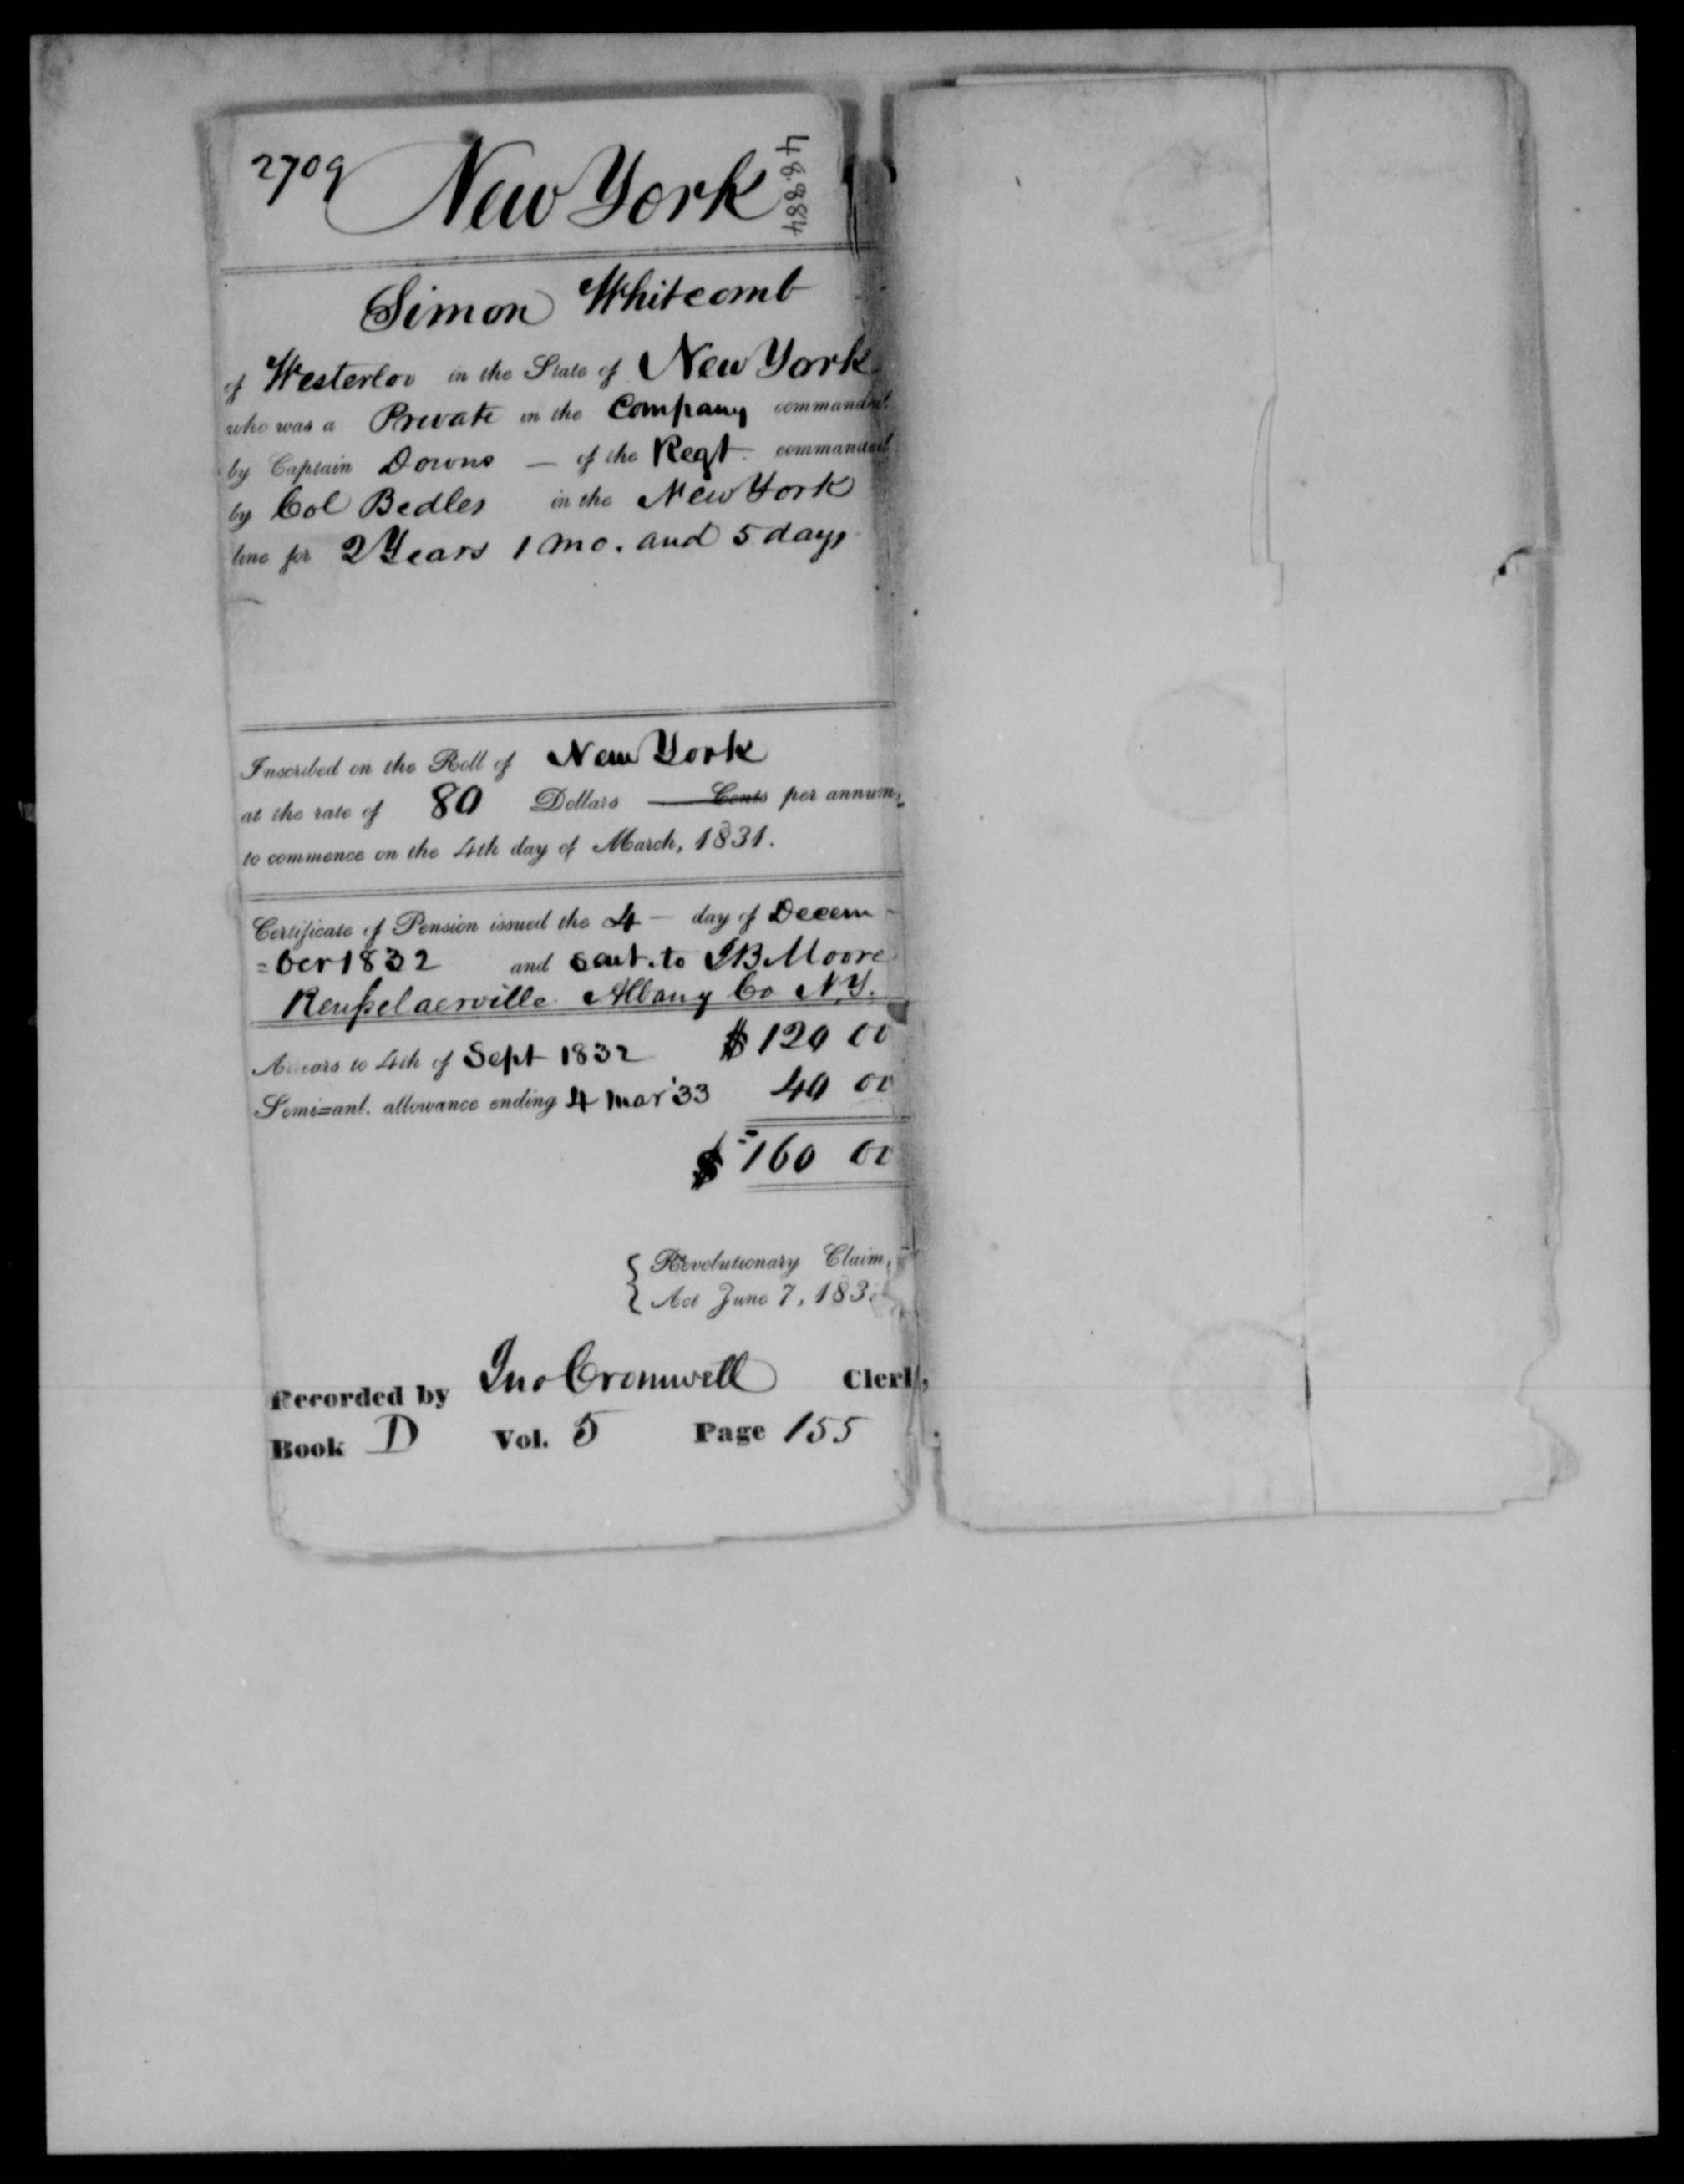 2709 New York
48884
Simon Whitcomb
of Westerloo in the State of New York
who was a Private in the Company commanded
by Captain Downs — of the Regt. commanded
by Col Bedles in the New York
line for 2 Years 1 mo. and 5 days
Inscribed on the Roll of New York
at the rate of 80 Dollars — Cents per annum,
to commence on the 4th day of March, 1831.
Certificate of Pension issued the 4 — day of Decem
=ber 1832 and sent. to J B Moore
Rensselaerville Albany Co N.Y.
Arrears to 4th of Sept 1832 $120 00
Semi=anl. allowance ending 4 Mar '33 40 00
$160 00
{ Revolutionary Claim,
{ Act June 7, 183
Recorded by Jno Cromwell Clerk,
Book D Vol. 5 Page 155